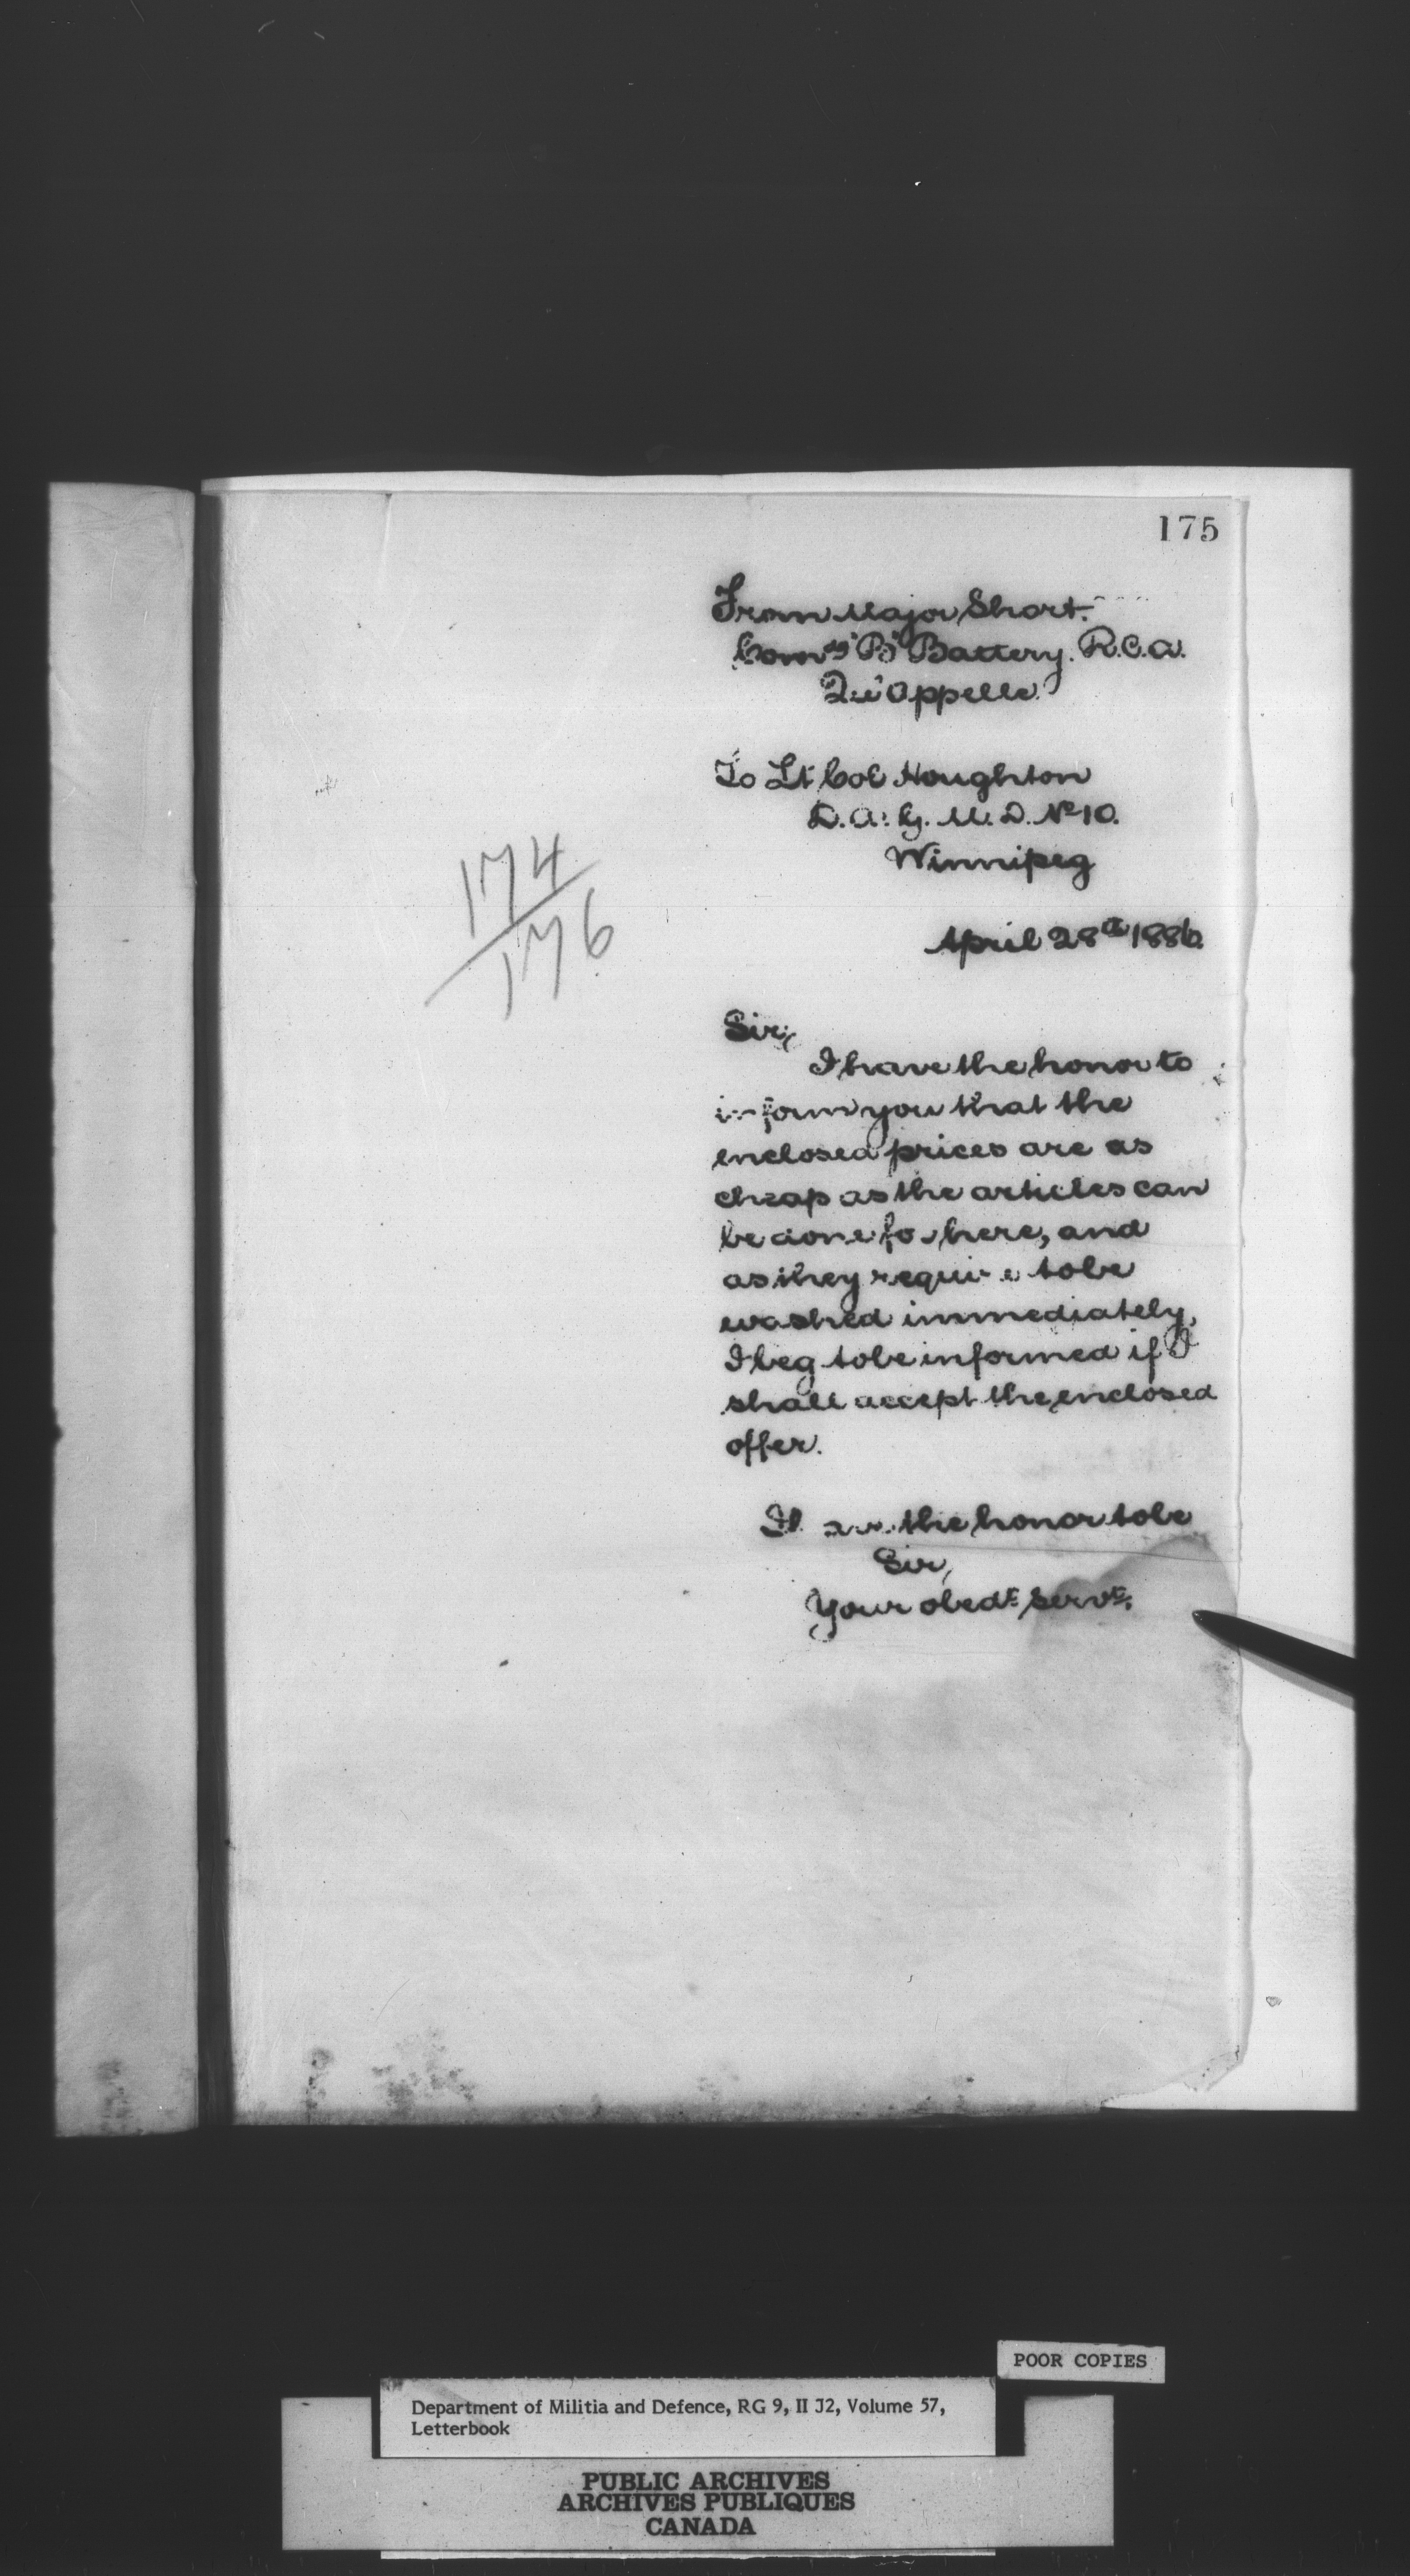 175
From Major Short.
Comdg "B" Battery. R.C.A.
Qu'Appelle.
To Lt Col Houghton
D.A.G. M.D. No 10.
Winnipeg
174
176
April 28th 1886.
Sir,
I have the honor to
inform you that the
enclosed prices are as
cheap as the articles can
be done for here, and
as they require to be
washed immediately,
I beg to be informed if I
shall accept the enclosed
offer.
I have the honor to be
Sir,
Your obedt servt.
POOR COPIES
Department of Militia and Defence, RG 9, II J2, Volume 57,
Letterbook
PUBLIC ARCHIVES
ARCHIVES PUBLIQUES
CANADA